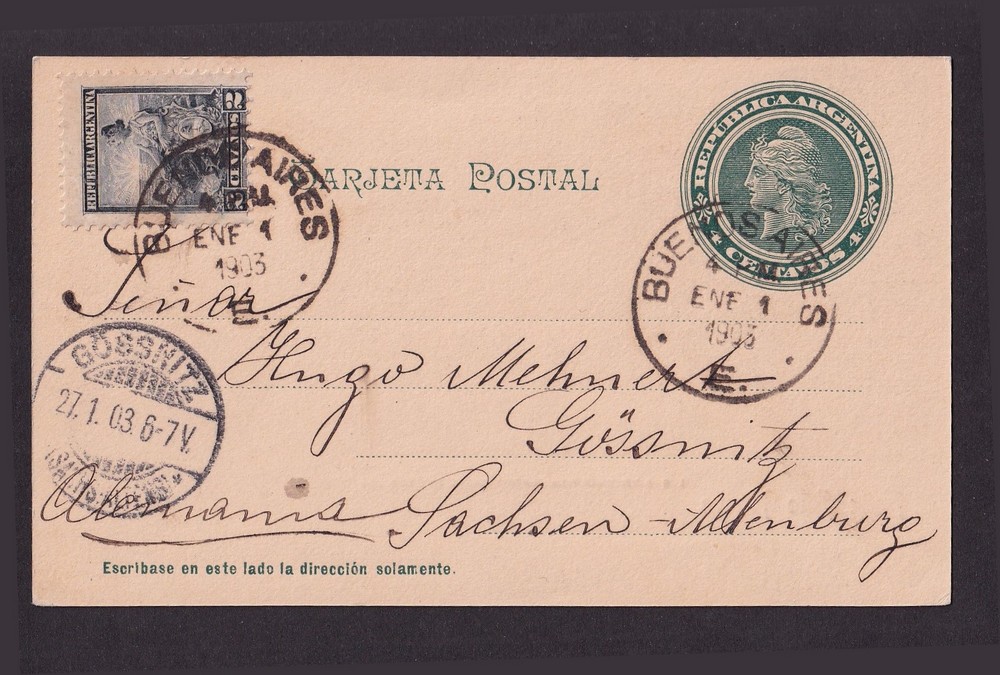 REPUBLICA ARGENTINA
2 CENTAVOS 2
TARJETA POSTAL
REPUBLICA ARGENTINA
4 CENTAVOS 4
BUENOS AIRES
ENE 1
1903
E.
BUENOS AIRES
4 P.M.
ENE 1
1903
E.
Señor
Hugo Mehnert
Gössnitz
Alemania Sachsen-Altenburg
GÖSSNITZ
27.1.03.6-7V.
Escríbase en este lado la dirección solamente.